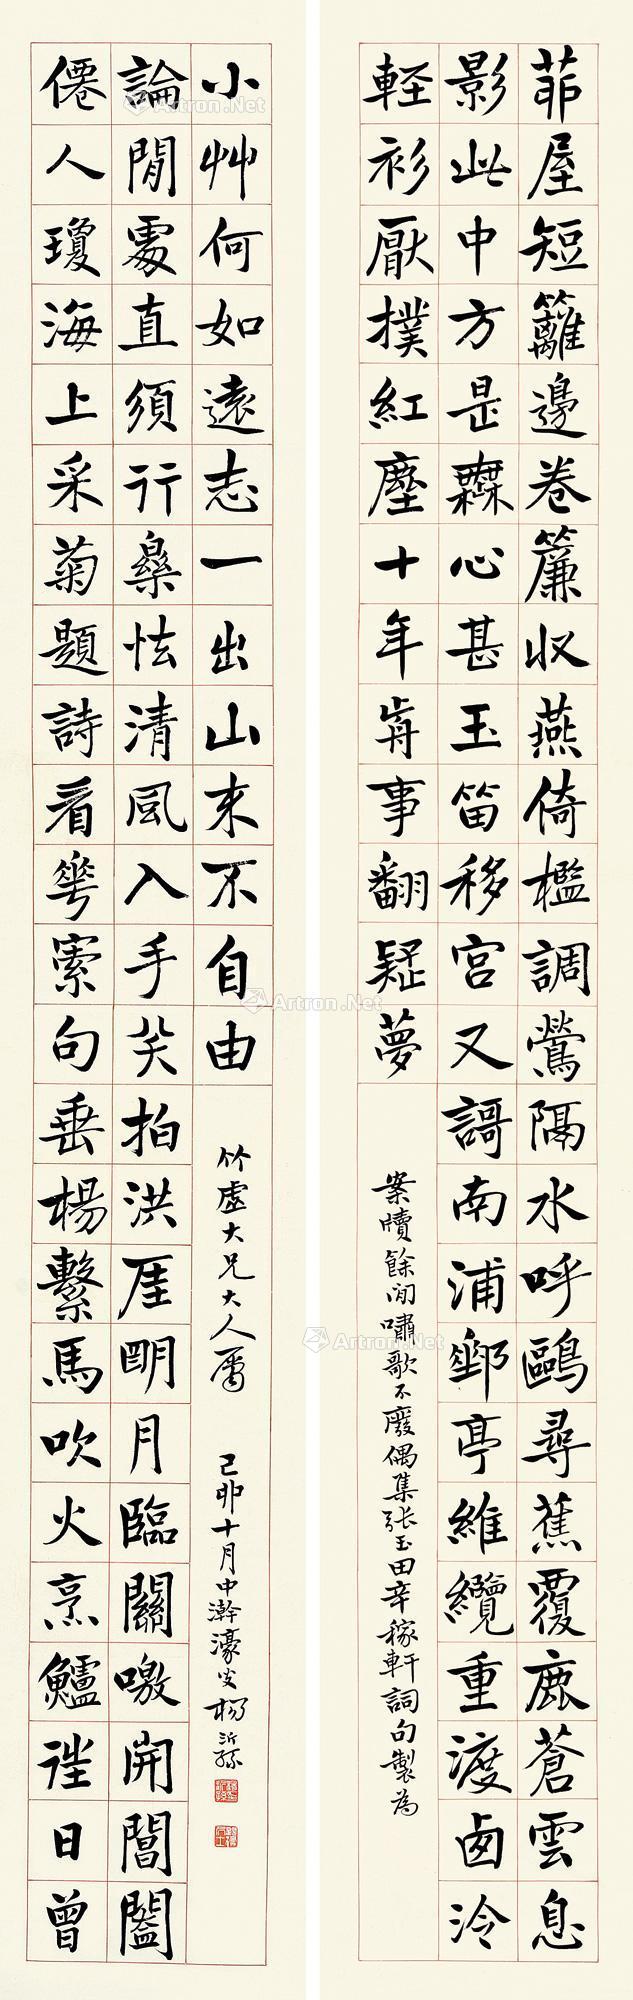 茆屋短籬邊卷簾收燕倚檻調鶯隔水呼鷗尋蕉覆鹿蒼雲息
影此中方是橆心甚玉笛移宮又謌南浦郵亭維纜重渡卥泠
輕衫厭撲紅塵十年歬事翻疑夢
案牘餘閒嘯歌不廢偶集張玉田辛稼軒詞句製為
僊人瓊海上采菊題詩看華索句垂楊繫馬吹火烹鱸往日曾
論閒處直須行樂怯清風入手笑拍洪厓朙月臨關噭開閶闔
小艸何如遠志一出山來不自由
竹虛大兄大人屬 己卯十月中澣濠叟楊沂孫
Artron.Net
Artron.Net
Artron.Net
Artron.Net